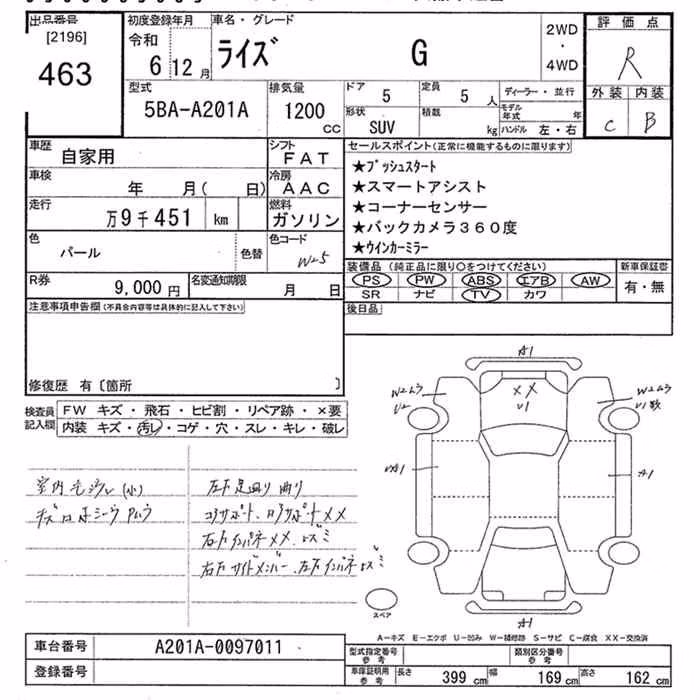 出品番号
[2196]
463
初度登録年月
令和
6 12 月
車名・グレード
ライズ G
2WD
・
4WD
評価点
R
外装 内装
C B
型式
5BA-A201A
排気量
1200
CC
ドア
5
定員
5 人
形状
SUV
積載
kg
ディーラー・並行
モデル年式 年
ハンドル 左・右
車歴
自家用
シフト
FAT
車検
年 月( 日)
冷房
AAC
走行
万9千451 km
燃料
ガソリン
色
パール
色替
色コード
W25
R券
9,000 円
名変通知期限
月 日
セールスポイント(正常に機能するものに限ります)
★プッシュスタート
★スマートアシスト
★コーナーセンサー
★バックカメラ360度
★ウインカーミラー
装備品 (純正品に限り○をつけてください)
PS PW ABS エアB AW
SR ナビ TV カワ
新車保証書
有・無
後日品
注意事項申告欄(不具合内容等は具体的に記入して下さい)
修復歴 有〔箇所 〕
検査員
記入欄
FW キズ・飛石・ヒビ割・リペア跡・×要
内装 キズ・汚レ・コゲ・穴・スレ・キレ・破レ
左下足廻り曲り
コアサポート
××
A1
XX
U1
W2ムラ
U2
W2ムラ
U1数
A1
A1
スペア
A-キズ E-エクボ U-凹み W-補修跡 S-サビ C-腐食 XX-交換済
車台番号
A201A-0097011
登録番号
型式指定番号
参考
類別区分番号
参考
車庫証明用
参考
長さ 399 cm 幅 169 cm 高さ 162 cm